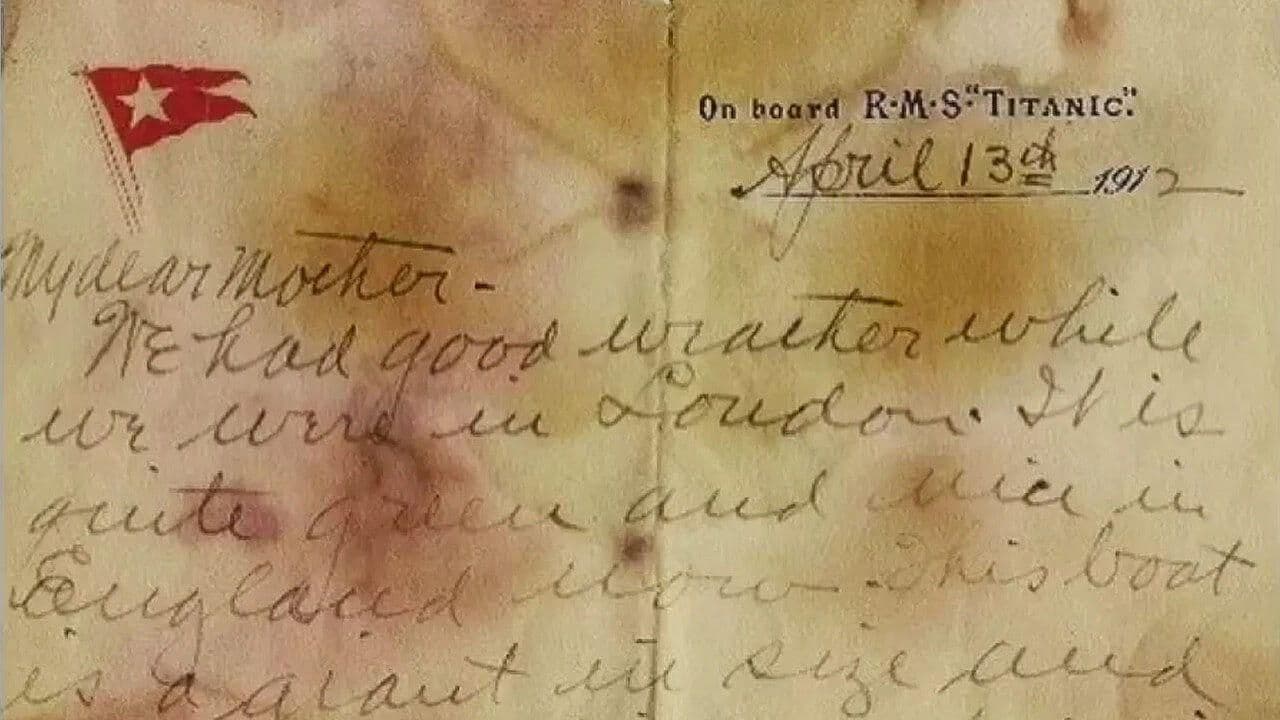 On board R·M·S·"TITANIC".
April 13th 1912
My dear Mother -
We had good weather while
we were in London. It is
quite green and nice in
England now. This boat
is a giant in size and